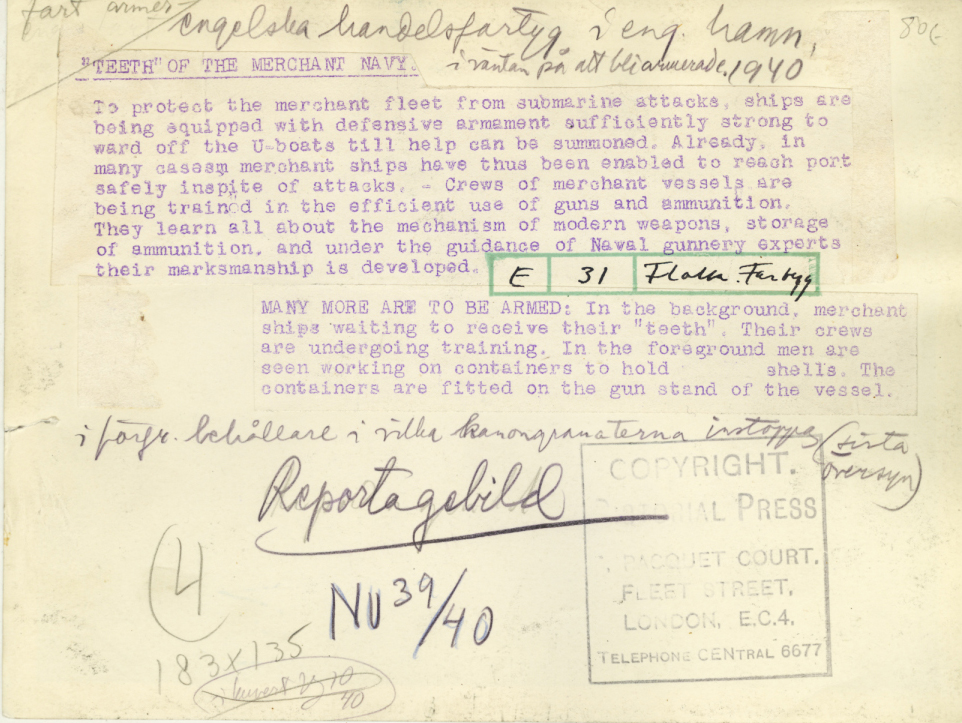 fart armer
engelska handelsfartyg i eng. hamn,
80c
i väntan på att bli armerade. 1940
"TEETH" OF THE MERCHANT NAVY.
To protect the merchant fleet from submarine attacks, ships are
being equipped with defensive armament sufficiently strong to
ward off the U-boats till help can be summoned. Already, in
many casesm merchant ships have thus been enabled to reach port
safely inspite of attacks. - Crews of merchant vessels are
being trained in the efficient use of guns and ammunition.
They learn all about the mechanism of modern weapons, storage
of ammunition, and under the guidance of Naval gunnery experts
their marksmanship is developed.
E 31 Flottn. Fartyg
MANY MORE ARE TO BE ARMED: In the background, merchant
ships waiting to receive their "teeth". Their crews
are undergoing training. In the foreground men are
seen working on containers to hold shells. The
containers are fitted on the gun stand of the vessel.
i förgr. behållare i vilka kanongranaterna instoppas (sista
översyn)
Reportagebild
COPYRIGHT.
PICTORIAL PRESS
PACQUET COURT.
FLEET STREET,
LONDON, E.C.4.
TELEPHONE CENTRAL 6677
4
NU 39/40
183x135
40